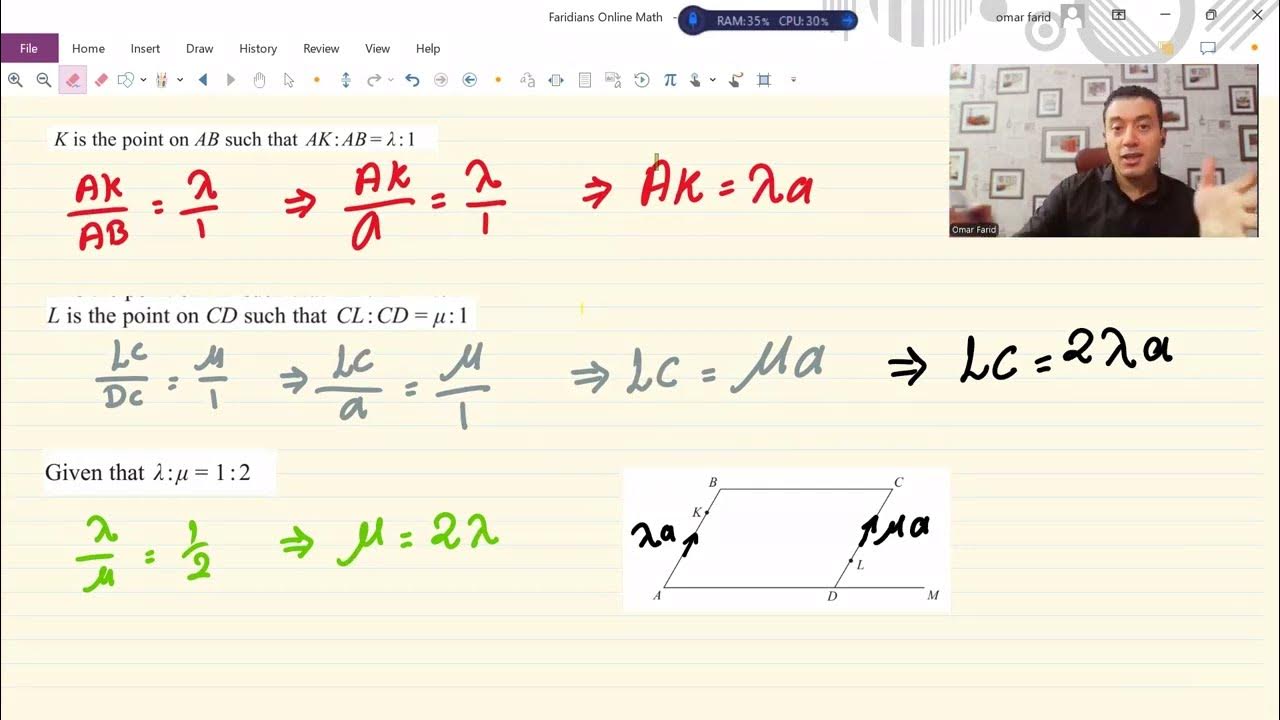 Faridians Online Math -
RAM:35% CPU:30%
omar farid
File Home Insert Draw History Review View Help
K is the point on AB such that AK:AB = λ:1
AK/AB = λ/1 ⇒ AK/a = λ/1 ⇒ AK = λa
Omar Farid
L is the point on CD such that CL:CD = μ:1
LC/DC = μ/1 ⇒ LC/a = μ/1 ⇒ LC = μa ⇒ LC = 2λa
Given that λ:μ = 1:2
λ/μ = 1/2 ⇒ μ = 2λ
B C
K
λa μa
L
A D M